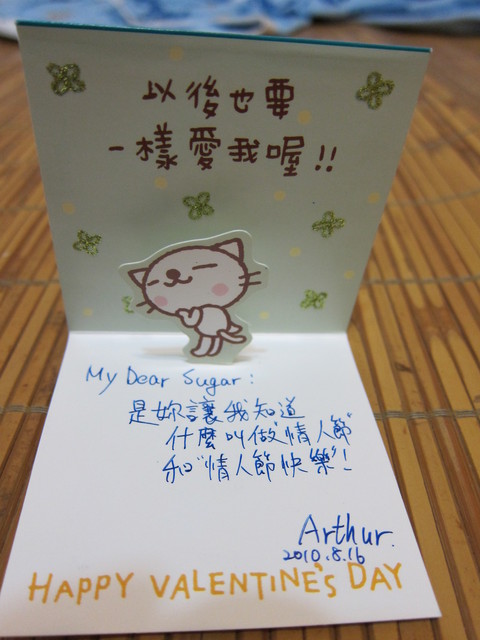 以後也要
一樣愛我喔!!
My Dear Sugar:
是妳讓我知道
什麼叫做"情人節"
和"情人節快樂"!
Arthur.
2010.8.16
HAPPY VALENTINE'S DAY